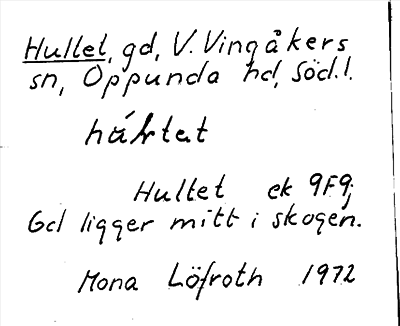 Hultet, gd, V. Vingåkers
sn, Oppunda hd, Södl.
Hultet ek 9F9j
Gd ligger mitt i skogen.
Mona Löfroth 1972